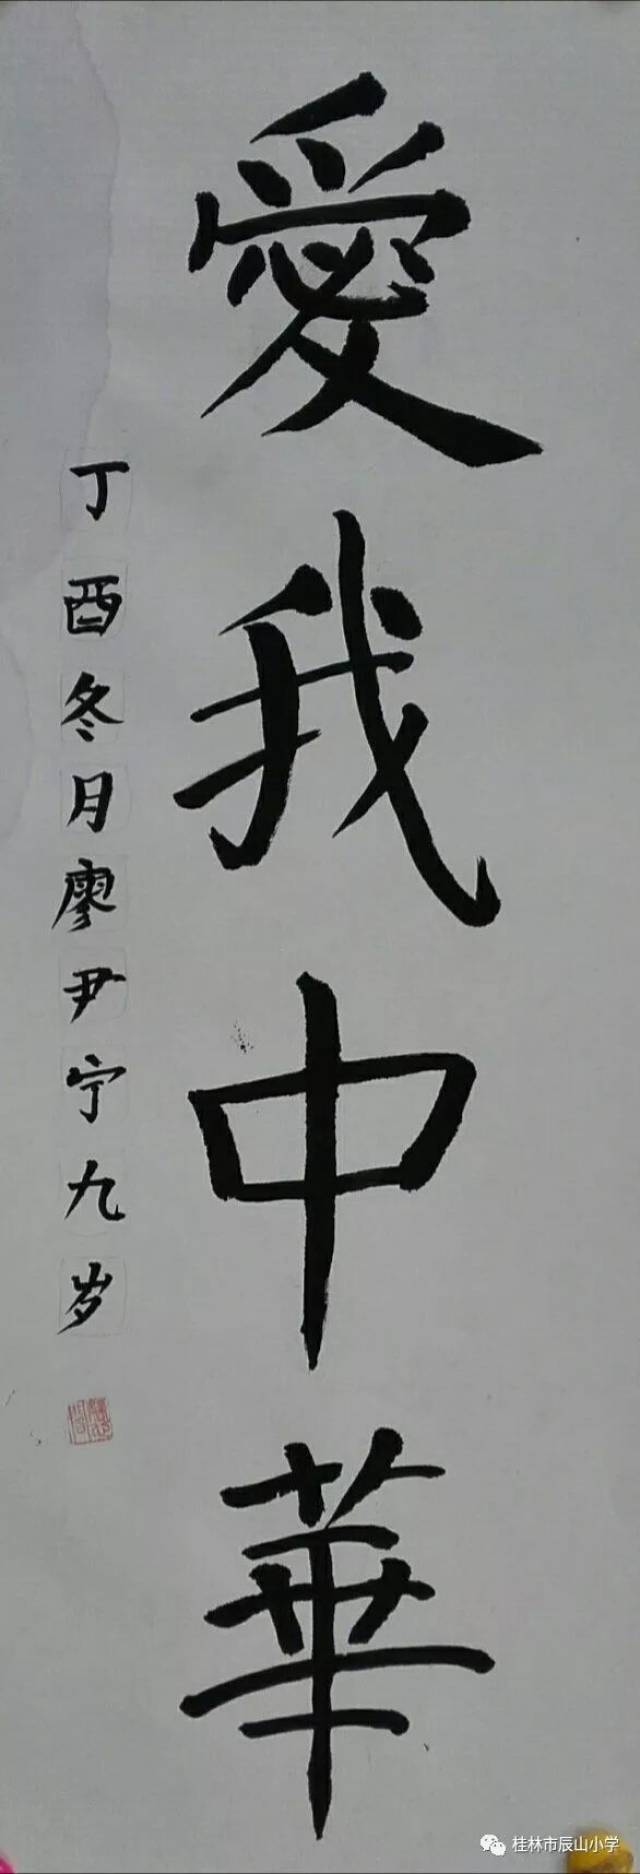 愛我中華
丁酉冬月廖尹宁九岁
桂林市辰山小学